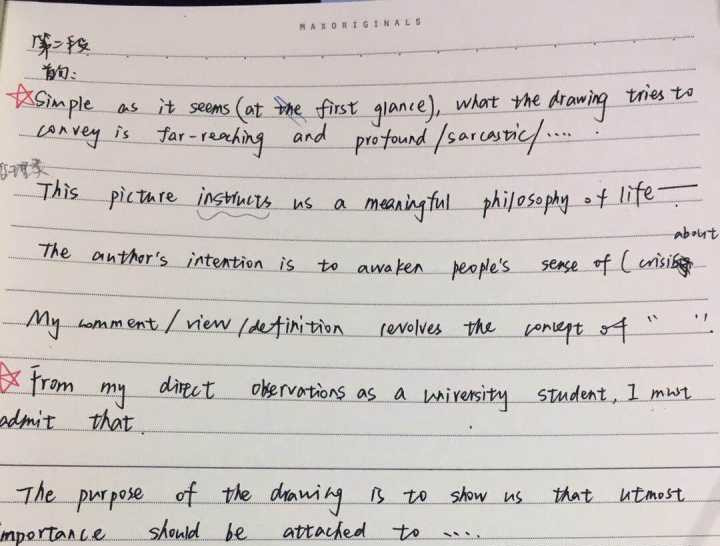 MAXORIGINALS
第二段
首句:
☆Simple as it seems (at the first glance), what the drawing tries to
convey is far-reaching and profound/sarcastic/....
This picture instructs us a meaningful philosophy of life —
about
The author's intention is to awaken people's sense of (crisis
My comment/view/definition revolves the concept of " ".
☆From my direct observations as a university student, I must
admit that
The purpose of the drawing is to show us that utmost
mportance should be attached to ....